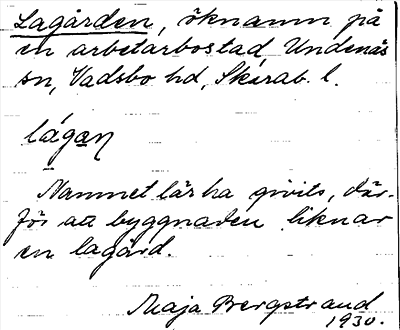 Lagården, öknamn på
en arbetarbostad, Undenäs
sn, Vadsbo hd, Skarab. l.
lágan
Namnet lär ha givits, där-
för att byggnaden liknar
en lagård.
Maja Bergstrand
1930.